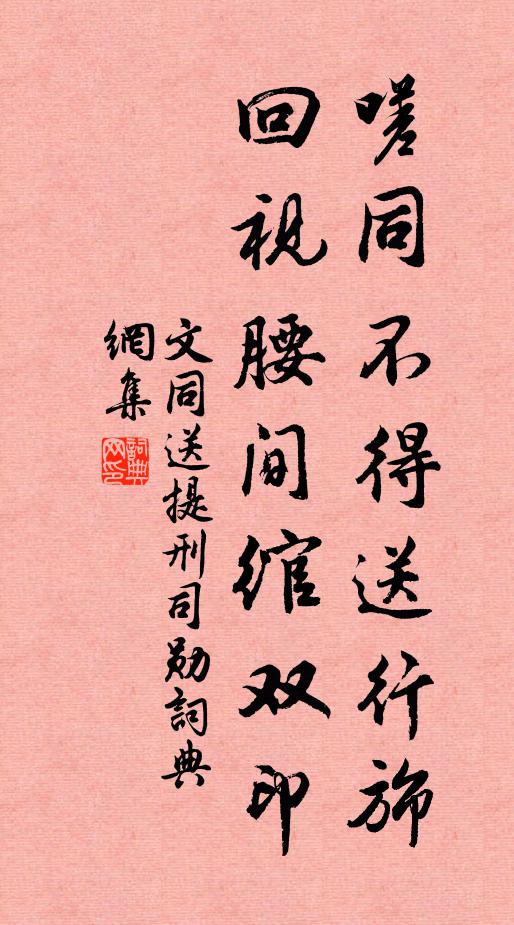 嗟同不得送行旆
回视腰间绾双印
文同送提刑司勋詞典
網集
詞典網印